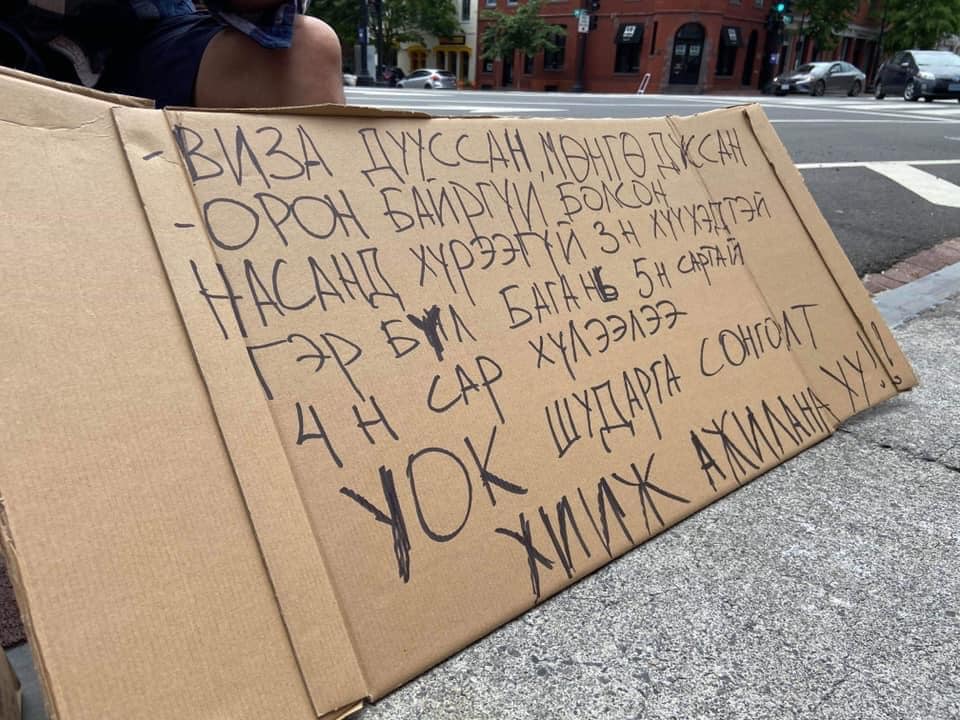 -ВИЗА ДУУССАН, МӨНГӨ ДУССАН
-ОРОН БАЙРГҮЙ БОЛСОН
НАСАНД ХҮРЭЭГҮЙ 3Н ХҮҮХЭДТЭЙ
ГЭР БҮЛ БАГАНЬ 5Н САРТАЙ
4Н САР ХҮЛЭЭЛЭЭ
УОК ШУДАРГА СОНГОЛТ
ХИЙЖ АЖИЛАНА УУ!!!